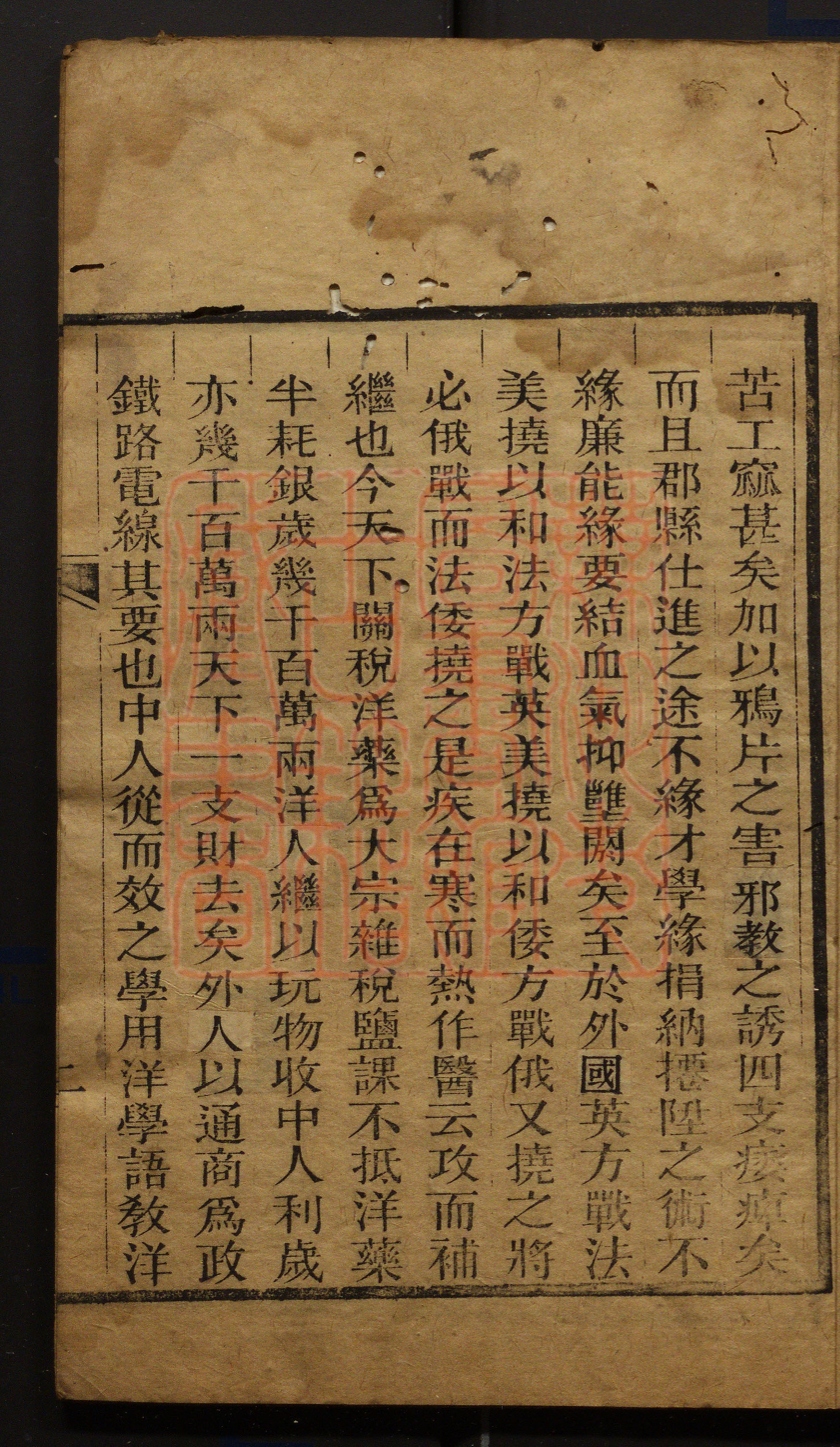 苦工窳甚矣加以鴉片之害邪教之誘四支痿痺矣
而且郡縣仕進之途不緣才學緣捐納遷陞之術不
緣廉能緣要結血氣抑壅閼矣至於外國英方戰法
美撓以和法方戰英美撓以和倭方戰俄又撓之將
必俄戰而法倭撓之是疾在寒而熱作醫云攻而補
繼也今天下關稅洋藥爲大宗雜稅鹽課不抵洋藥
半耗銀歲幾千百萬兩洋人繼以玩物收中人利歲
亦幾千百萬兩天下一支財去矣外人以通商爲政
鐵路電線其要也中人從而效之學用洋學語教洋
二